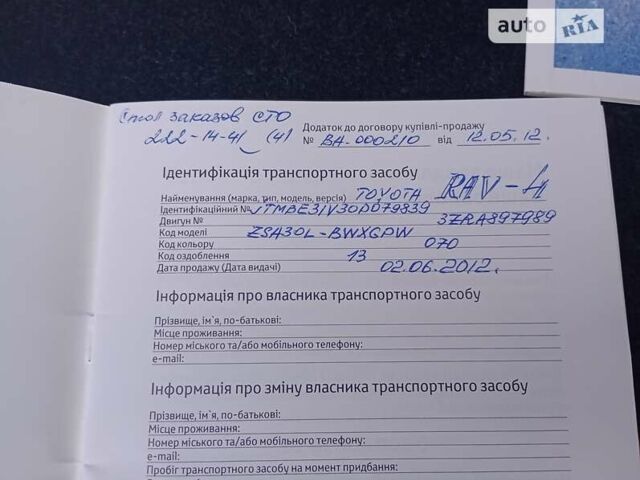 auto RIA
Стол заказов СТО
222-14-41 (41)
Додаток до договору купівлі-продажу
№ ВА-000210 від 12.05.12.
Ідентифікація транспортного засобу
Найменування (марка, тип, модель, версія) TOYOTA RAV-4
Ідентифікаційний № JTMBE31V30D079839
Двигун № 3ZRA897989
Код моделі ZSA30L-BWXGPW
Код кольору 070
Код оздоблення 13
Дата продажу (Дата видачі) 02.06.2012.
Інформація про власника транспортного засобу
Прізвище, ім`я, по-батькові:
Місце проживання:
Номер міського та/або мобільного телефону:
e-mail:
Інформація про зміну власника транспортного засобу
Прізвище, ім`я, по-батькові:
Місце проживання:
Номер міського та/або мобільного телефону:
e-mail:
Пробіг транспортного засобу на момент придбання: